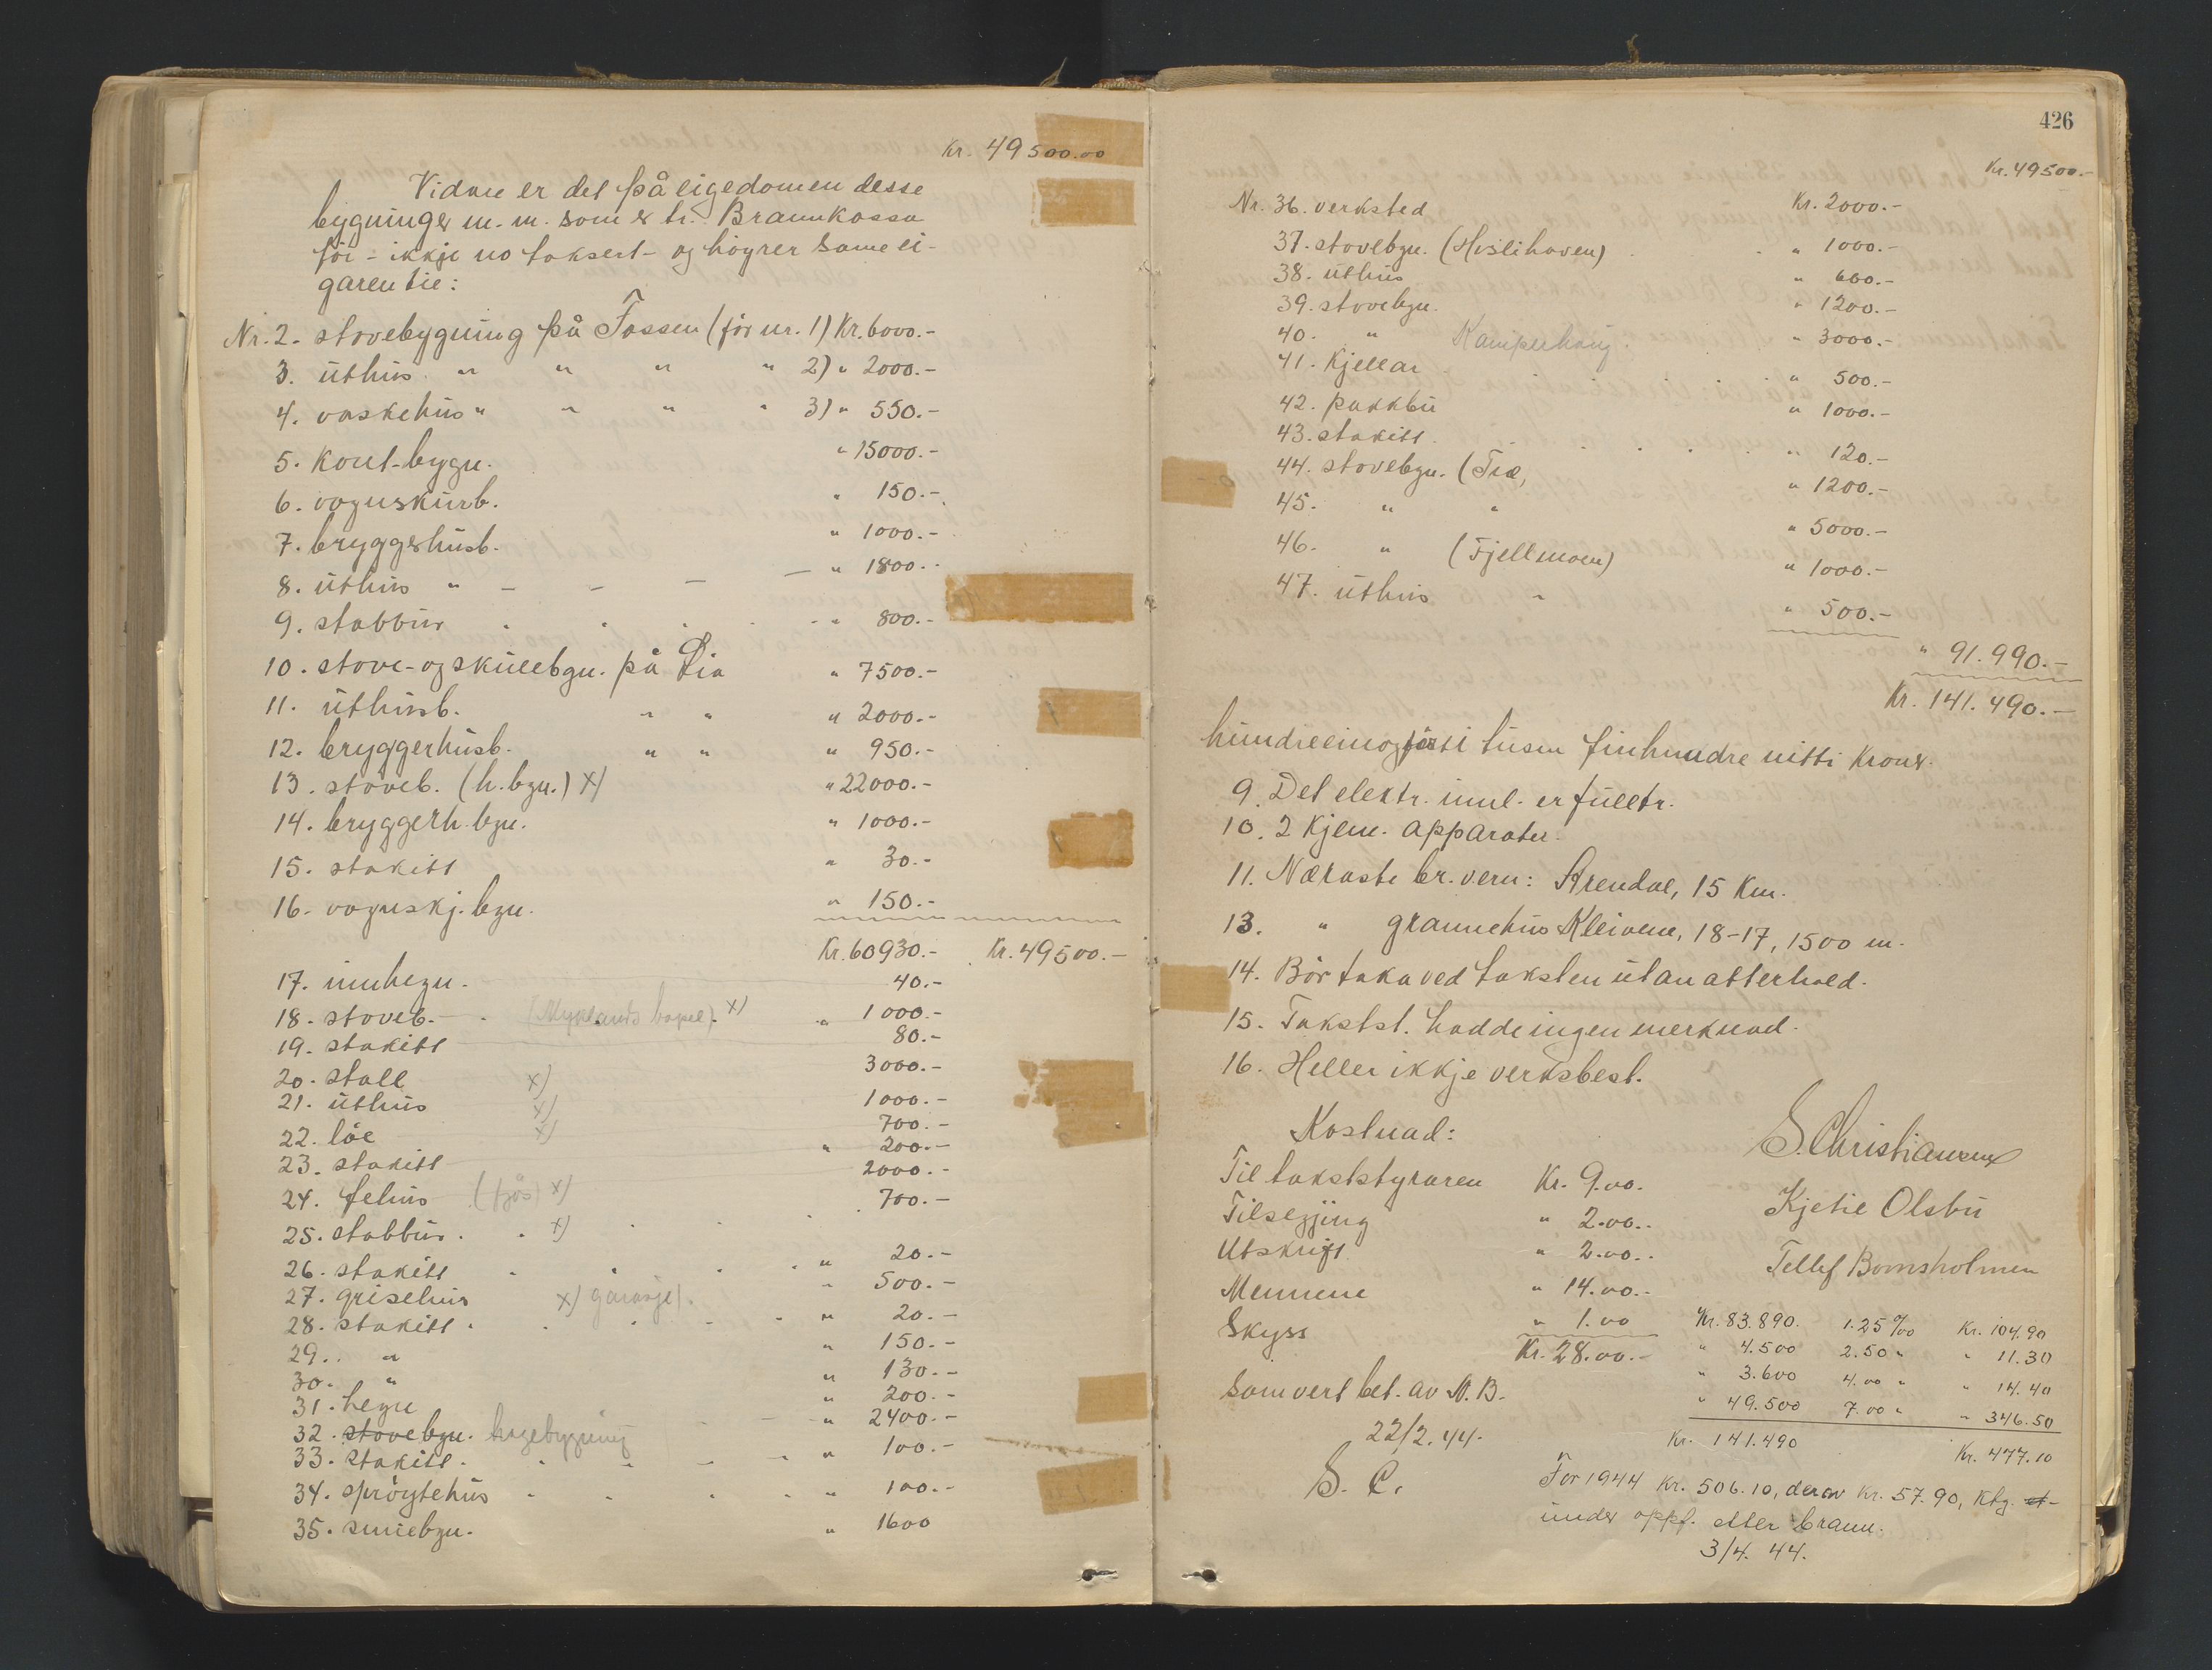 Kr. 49500.00
Vidare er det på eigedomen desse
bygninger m. m. som er tr. i Brannkassa
för - ikkje no taksert - og höyrer same ei-
garen til:
Nr. 2. stovebygning på Fossen (för nr. 1) Kr. 6000.-
3. úthús " " " " 2) " 2000.-
4. vaskehús " " " " 3) " 550.-
5. Kont-bygn. " 15000.-
6. vognskúrb. " 150.-
7. bryggerhúsb. " 1000.-
8. úthús " - - - - " 1800.-
9. stabbúr " 800.-
10. stove- og skúlebgn. på Lia " 7500.-
11. úthúsb. " " " 2000.-
12. bryggerhúsb. " " " 950.-
13. stöveb. (h. bgn.) x) " 22000.-
14. bryggerh. bgn. " 1000.-
15. stakitt " 30.-
16. vognskj. bgn. " 150.-
Kr. 60930.- Kr. 49500.-
17. innhegn. 40.-
18. stoveb. (Myklands kapel). x) " 1000.-
19. stakitt 80.-
20. stall x) 3000.-
21. úthús x) 1000.-
22. löe x) 700.-
23. stakitt " 200.-
24. fehús (fjös) x) 2000.-
25. stabbúr x) 700.-
26. stakitt " 20.-
27. grisehús x) garasje). " 500.-
28. stakitt " 20.-
29. " " 150.-
30. " " 130.-
31. hegn " 200.-
32. stovebgn. hagebygning " 2400.-
33. stakitt " 100.-
34. spröytehús " 100.-
35. smiebgn. " 1600
426
Kr. 49500.-
Nr. 36. verksted Kr. 2000.-
37. stovebgn. (Hislihaven) " 1000.-
38. úthús " 600.-
39. stovebgn. " 1200.-
40. " Kamperhaug. " 3000.-
41. Kjellar " 500.-
42. pakkbú " 1000.-
43. stakitt " 120.-
44. stovebgn. (Træ, " 1200.-
45. " " " 5000.-
46. " (Fjellmoen) " 1000.-
47. úthús " " 500.-
" 91.990.-
Kr. 141.490.-
húndreeinogförti túsen firehundre nitti Kroner.
9. Det elektr. innl. er fúlltr.
10. 2 Kjem. apparater.
11. Næraste br. vern: Arendal, 15 Km.
13. " grannehús Kleivene, 18-17, 1500 m.
14. Bör taka ved taksten útan atterhald.
15. Takstst. hadde ingen merknad.
16. Heller ikkje verksbest.
Kostnad:
S. Christiansen
Til takststyraren Kr. 9.00.
Kjetil Olsbú
Tilseging " 2.00.
Utskrift " 2.00.
Tellef Bomsholmen
Mennene " 14.00.-
Skyss " 1.00
Kr. 28.00.-
Kr. 83.890. 1.25 ‰ Kr. 104.90
" 4.500 2.50 " " 11.30
" 3.600 4.00 " " 14.40
" 49.500 7.00 " " 346.50
Kr. 141.490 Kr. 477.10
som vert bet. av N. B.
22/2. 44.
S. C.
For 1944 Kr. 506.10, derav Kr. 57.90, Ktg. et-
únder oppf. etter brann.
3/4. 44.